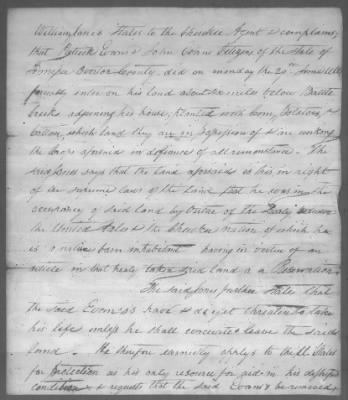 William Jones States to the Cherokee Agent & complains
that Patrick Evans & John Evans Citizens of the State of
County, did on monday the 20th June
forcibly enter on his land about six miles below Battle
Creek adjoining his house, planted with Corn, Potatoes, &
Cotton, which land they are in possession of & are working
the crop aforesaid in defiance of all remonstrance. The
said Jones says that the land aforesaid is his in right
of the supreme laws of the Land, that he was in the
occupancy of said land by virtue of the Treaty between
the United States & the Cherokee nation of which he
is a native born inhabitant having in virtue of an
article in that treaty taken said land as a Reservation
The said Jones further states that
the said Evans's have & as yet threaten to take
his life unless he shall leave the said
land. He therefore earnestly applys to the U. States
for protection as his only resource for aid in his
condition & requests that the said Evans's be removed